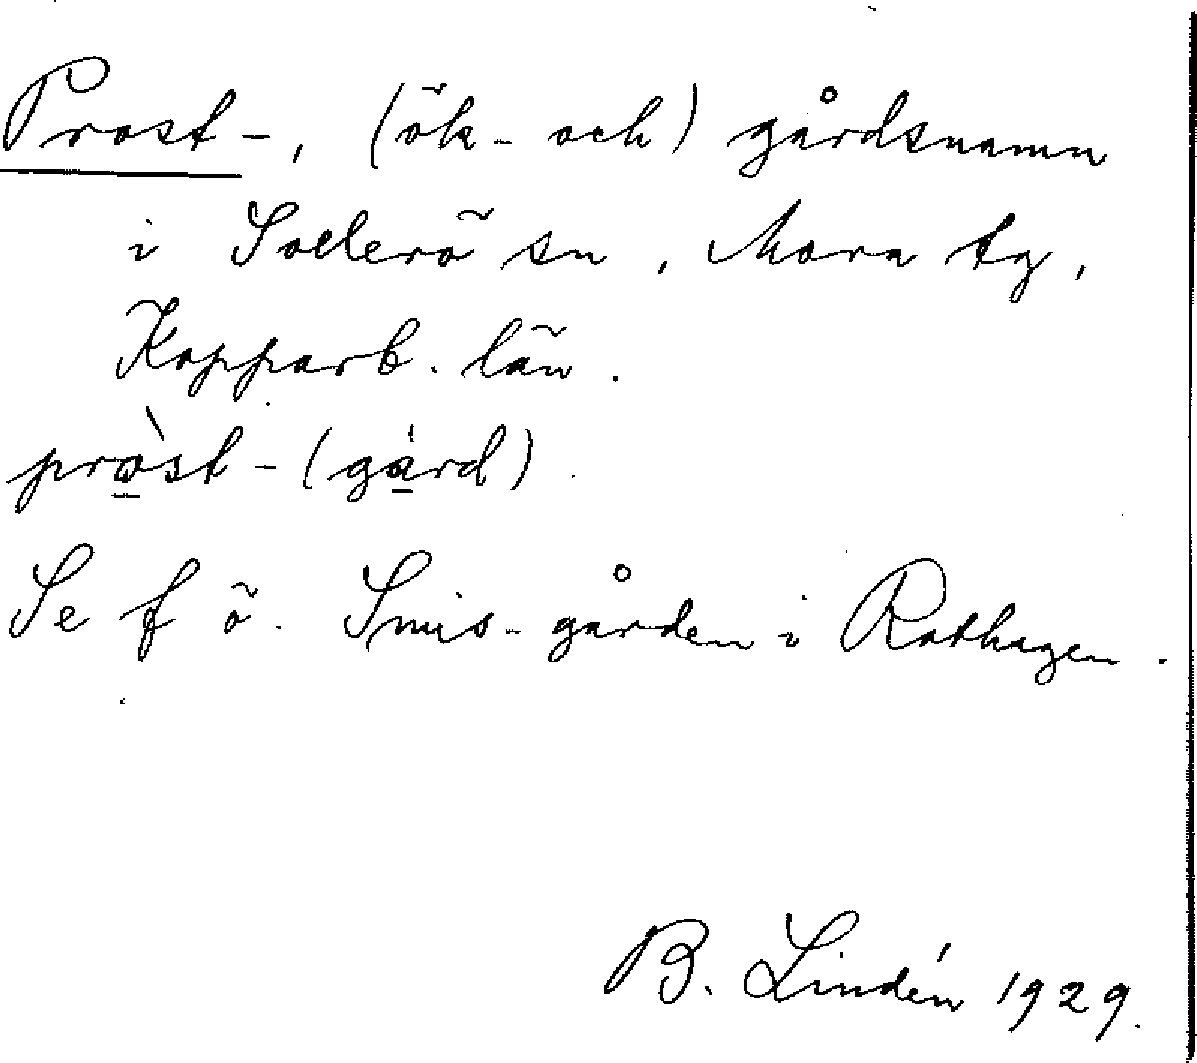 Prost-, (ök- och) gårdsnamn
i Sollerö sn, Mora tg,
Kopparb. län.
pròst-(gàrd).
Se f ö. Smis-gården i Rothagen.
B. Lindén 1929.